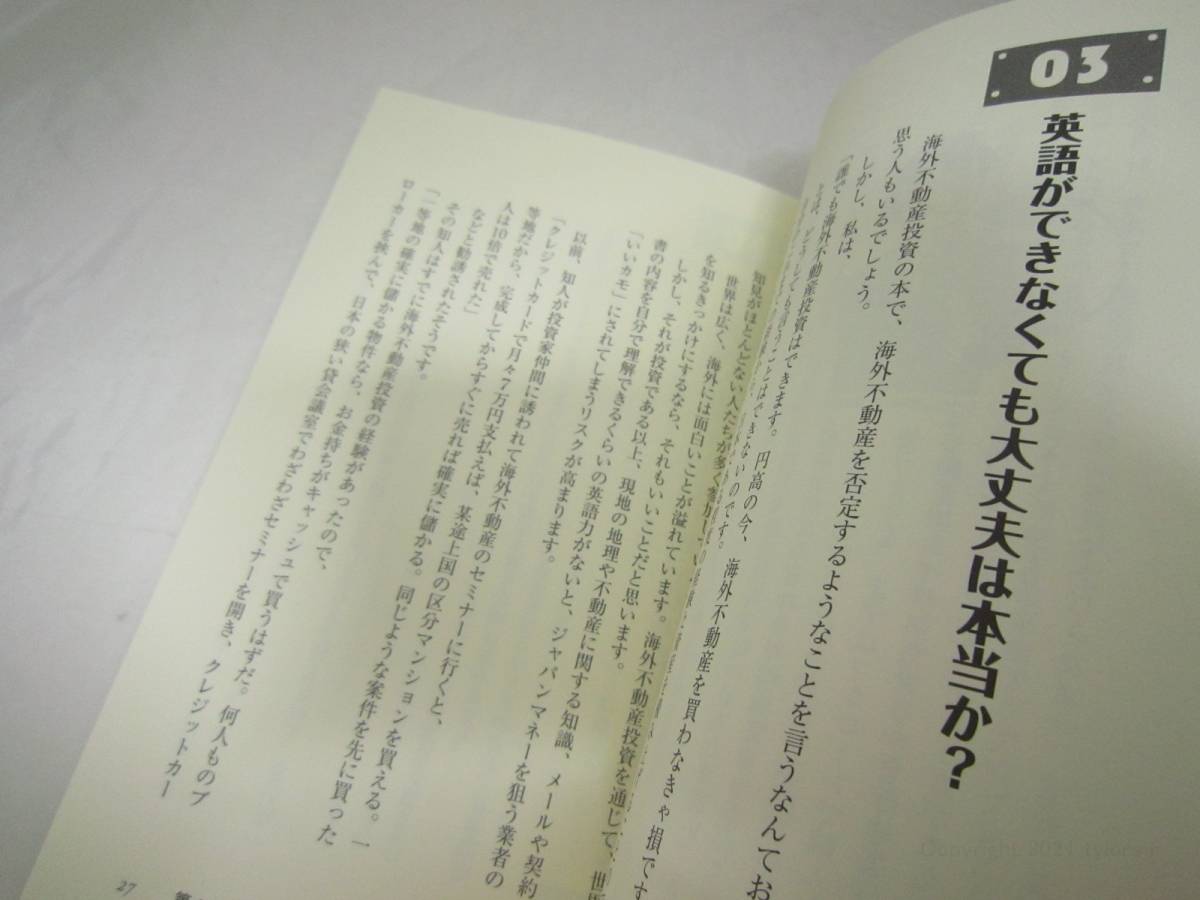 03
英語ができなくても大丈夫は本当か?
海外不動産投資の本で、海外不動産を否定するようなことを言うなんてお
思う人もいるでしょう。
しかし、私は、
「誰でも海外不動産投資はできます。円高の今、海外不動産を買わなきゃ損です
とは、どうしても言うことはできないのです。
知見がほとんどない人たちが多く
世界は広く、海外には面白いことが溢れています。海外不動産投資を通じて、世
を知るきっかけにするなら、それもいいことだと思います。
しかし、それが投資である以上、現地の地理や不動産に関する知識、メールや契約
書の内容を自分で理解できるくらいの英語力がないと、ジャパンマネーを狙う業者の
「いいカモ」にされてしまうリスクが高まります。
以前、知人が投資家仲間に誘われて海外不動産のセミナーに行くと、
「クレジットカードで月々7万円支払えば、某途上国の区分マンションを買える。一
等地だから、完成してからすぐに売れば確実に儲かる。同じような案件を先に買った
人は10倍で売れた」
などと勧誘されたそうです。
その知人はすでに海外不動産投資の経験があったので、
「一等地の確実に儲かる物件なら、お金持ちがキャッシュで買うはずだ。何人ものブ
ローカーを挟んで、日本の狭い貸会議室でわざわざセミナーを開き、クレジットカー
27